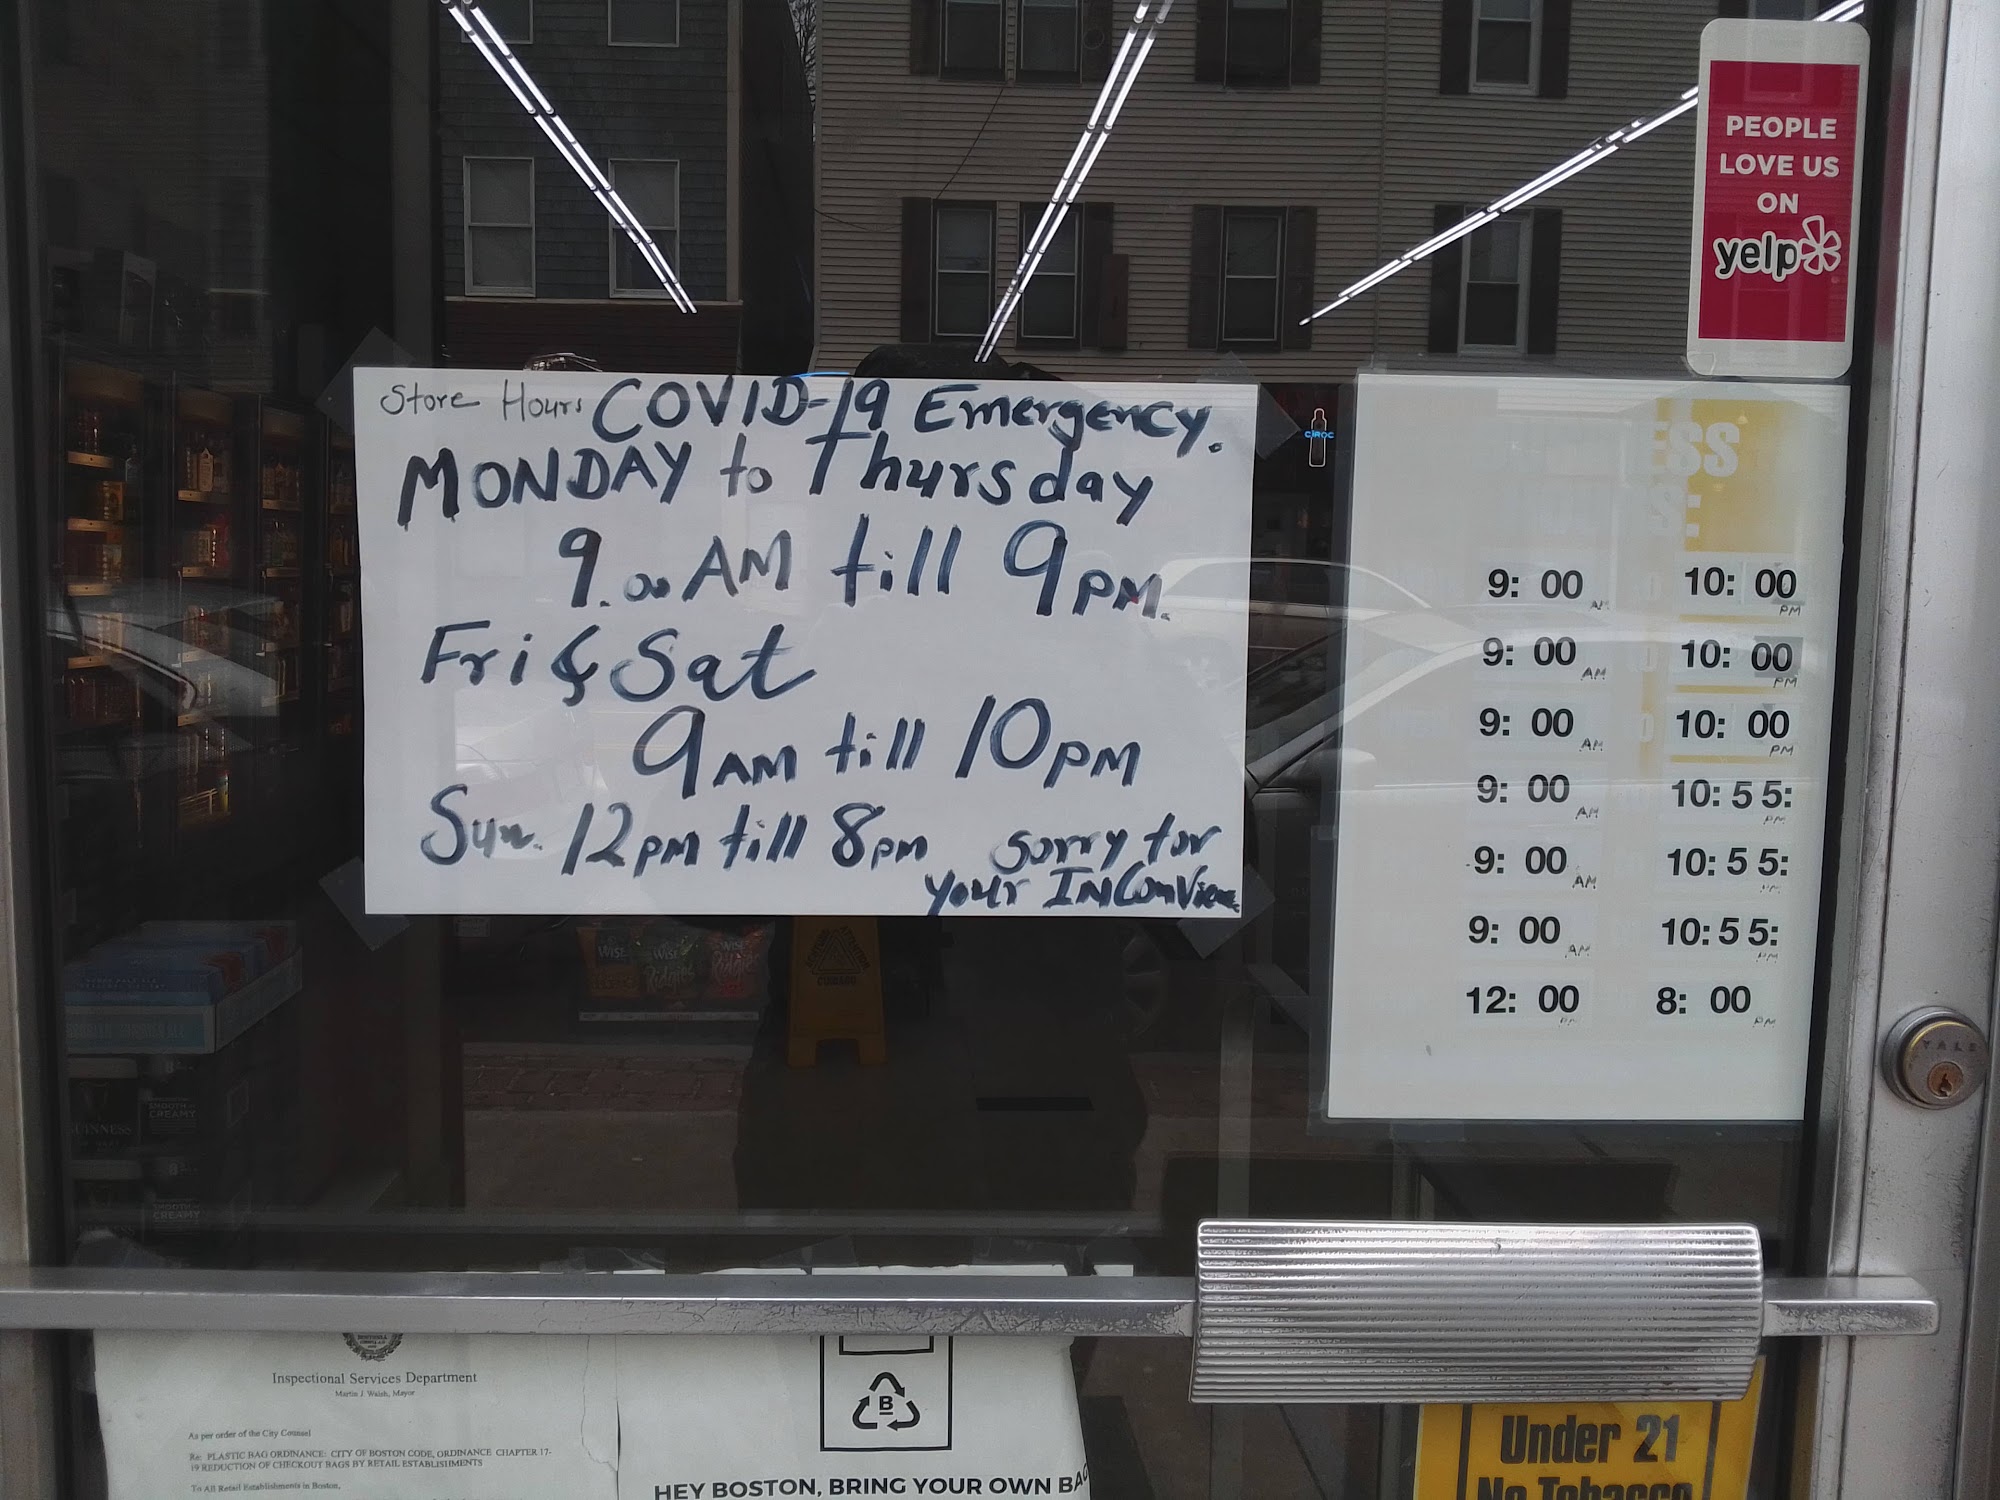 PEOPLE
LOVE US
ON
yelp
Store Hours COVID-19 Emergency.
MONDAY to Thursday
9.00 AM till 9 PM.
Fri & Sat
9 AM till 10 PM
Sun. 12 PM till 8 PM sorry for
your INConVien
CIROC
ESS
S:
9: 00 AM 10: 00 PM
9: 00 AM 10: 00 PM
9: 00 AM 10: 00 PM
9: 00 AM 10: 55: PM
9: 00 AM 10: 55: PM
9: 00 AM 10: 55: PM
12: 00 PM 8: 00 PM
YALE
WISE WISE WISE
Ridgies Ridgies
CUIDADO
GUINNESS
SMOOTH
CREAMY
SMOOTH
CREAMY
Inspectional Services Department
Martin J Walsh, Mayor
As per order of the City Counsel
Re: PLASTIC BAG ORDINANCE: CITY OF BOSTON CODE, ORDINANCE CHAPTER 17-
19 REDUCTION OF CHECKOUT BAGS BY RETAIL ESTABLISHMENTS
To All Retail Establishments in Boston,
B
HEY BOSTON, BRING YOUR OWN BAG
Under 21
No Tobacco